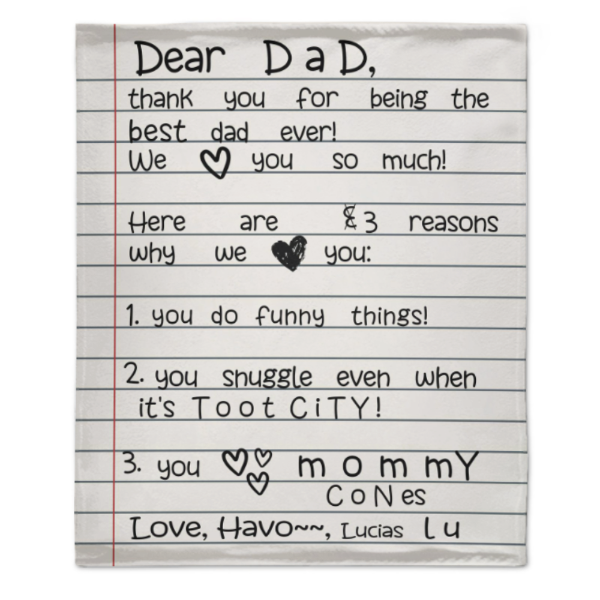 Dear DaD,
thank you for being the
best dad ever!
We ♡ you so much!
Here are 3 reasons
why we ♥ you:
1. you do funny things!
2. you snuggle even when
it's Toot CiTY!
3. you ♡♡♡ mommY
CoNes
Love, Havo~~, Lucias Lu